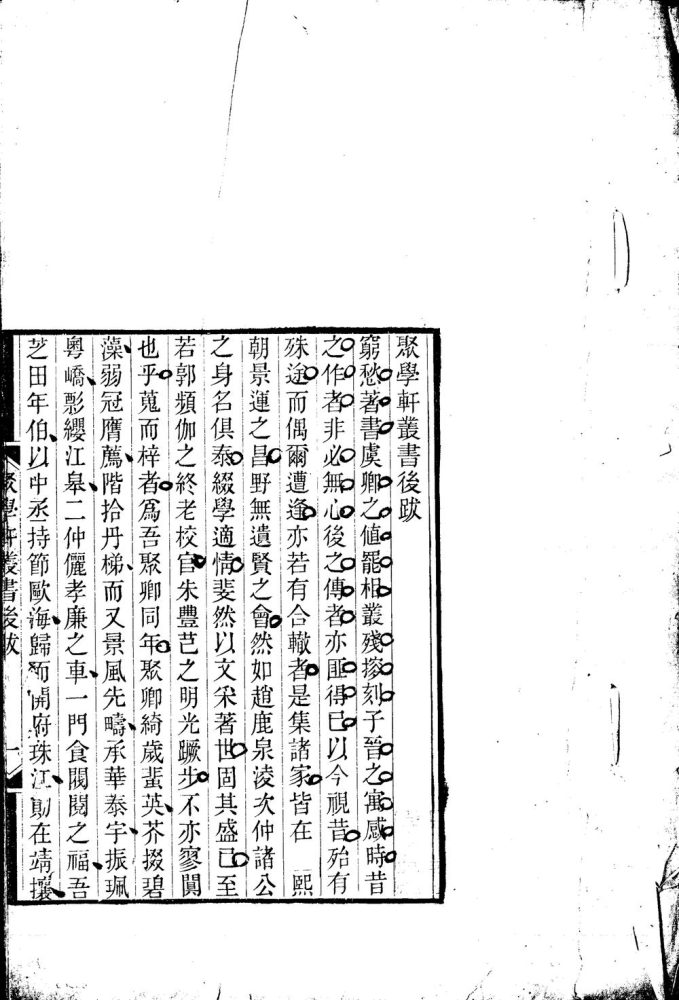 聚學軒叢書後跋
窮愁著書虞卿之値罷相叢殘搜刻子晉之寓感時昔
之作者非必無心後之傳者亦匪得已以今視昔殆有
殊途而偶爾遭逢亦若有合轍者是集諸家皆在　熙
朝景運之昌野無遺賢之會然如趙鹿泉淩次仲諸公
之身名俱泰綴學適情斐然以文采著世固其盛已至
若郭頻伽之終老校官朱豐芑之明光蹶步不亦寥闃
也乎蒐而梓者爲吾聚卿同年聚卿綺歲蜚英芥掇碧
藻弱冠膺薦階拾丹梯而又景風先疇承華泰宇振珮
粵嶠影纓江皋二仲儷孝廉之車一門食閥閱之福吾
芝田年伯以中丞持節歐海歸而開府珠江勛在靖攘
聚學軒叢書後跋
一